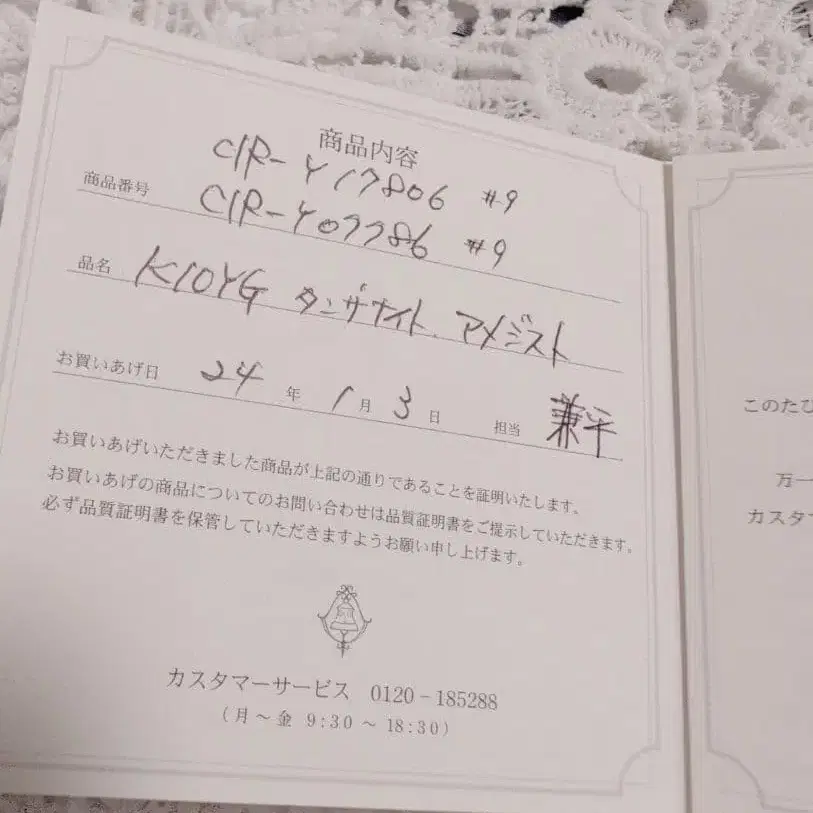 商品内容
CIR-Y17806 #9
商品番号
CIR-Y07786 #9
品名 K10YG タンザナイト、アメジスト
お買いあげ日 24年 1月 3日 担当 兼平
お買いあげいただきました商品が上記の通りであることを証明いたします。
お買いあげの商品についてのお問い合わせは品質証明書をご提示していただきます。
必ず品質証明書を保管していただきますようお願い申し上げます。
カスタマーサービス 0120-185288
(月～金 9:30 ～ 18:30)
このたび
万一
カスタマ